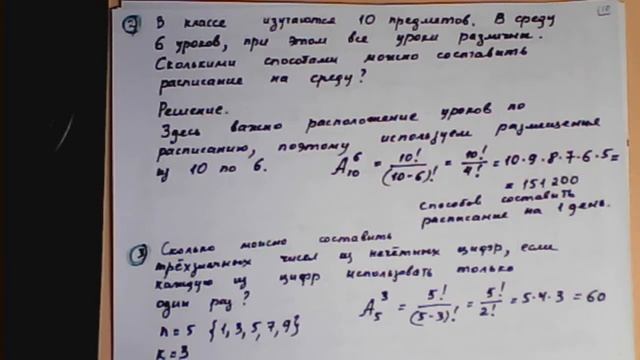 ② В классе изучаются 10 предметов. В среду
6 уроков, при этом все уроки различны.
Сколькими способами можно составить
расписание на среду?
Решение.
Здесь важно расположение уроков по
расписанию, поэтому используем размещения
из 10 по 6. A₁₀⁶ = 10!/(10-6)! = 10!/4! = 10·9·8·7·6·5 =
= 151 200
способов составить
расписание на 1 день.
③ Сколько можно составить
трёхзначных чисел из нечётных цифр, если
каждую из цифр использовать только
один раз? A₅³ = 5!/(5-3)! = 5!/2! = 5·4·3 = 60
n = 5 {1, 3, 5, 7, 9}
k = 3